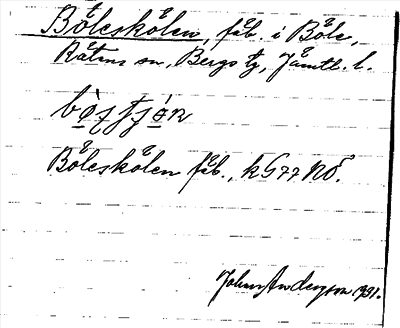 Böleskölen, fäb. i Böle,
Rätans sn, Bergs tg, Jämtl. l.
Böleskölen fäb., k G77 NÖ.
John Anderson 1931.